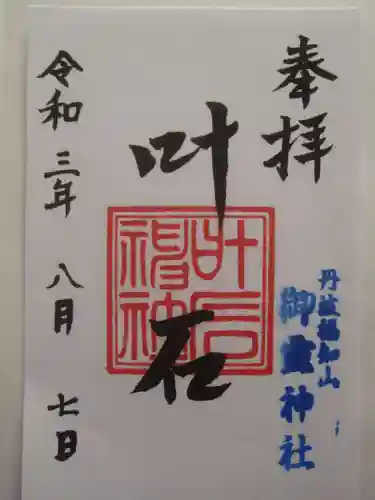 奉拝
丹波福知山
御霊神社
叶石
叶石
禓神
令和三年八月七日